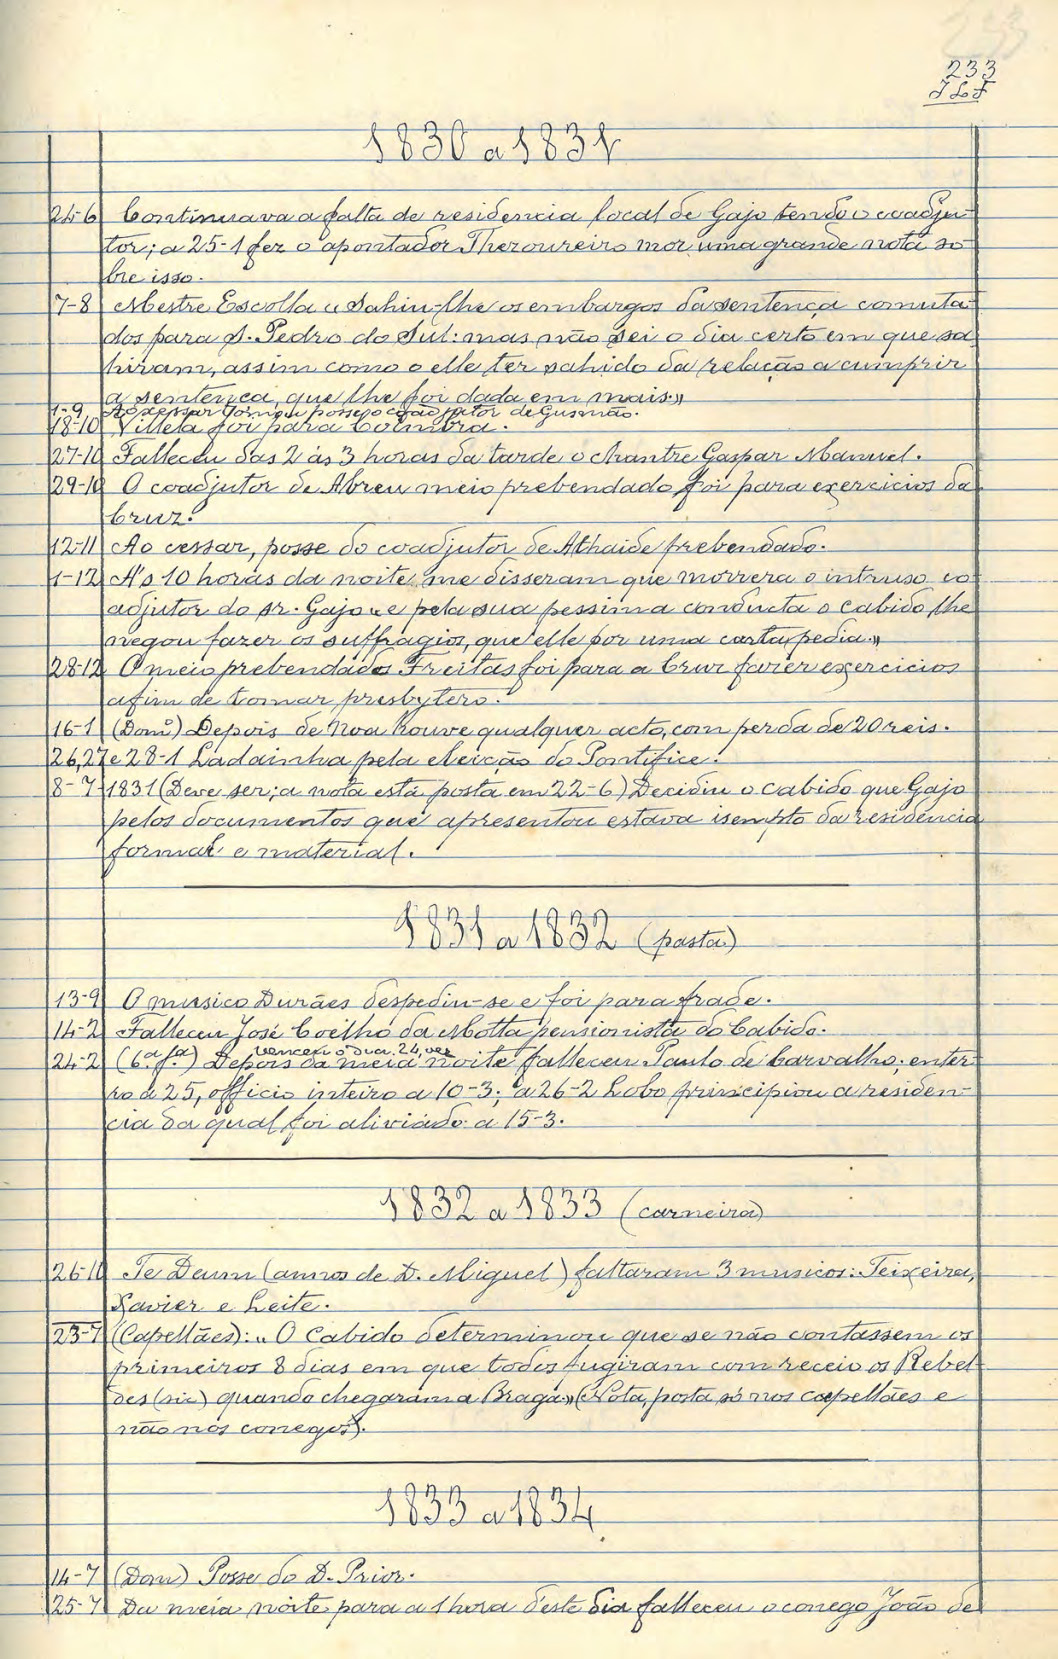 233
JLF
1830 a 1831
24-6 Continuava a falta de residencia local de Gajo tendo o coadju-
tor; a 25-1 fez o apontador Thezoureiro mor uma grande nota so-
bre isso.
7-8 Mestre Escolla « Sahiu-lhe os embargos da sentença comuta-
dos para S. Pedro do Sul: mas não sei o dia certo em que sa-
hiram, assim como o elle ter sahido da relação a cumprir
a sentença, que lhe foi dada em mais.»
1-9 Ao cessar tomou posse o coadjutor de Gusmão.
18-10 Villela foi para Coimbra.
27-10 Falleceu das 2 ás 3 horas da tarde o chantre Gaspar Manuel.
29-10 O coadjutor de Abreu meio prebendado foi para exercicios da
Cruz.
12-11 Ao cessar, posse do coadjutor de Athaide prebendado.
1-12 A's 10 horas da noite me disseram que morrera o intruso co-
adjutor do sr. Gajo « e pela sua pessima conducta o cabido lhe
negou fazer os suffragios, que elle por uma carta pedia.»
28-12 O meio prebendado Freitas foi para a Cruz fazer exercicios
afim de tomar presbytero.
16-1 (Domº) Depois de Noa houve qualquer acto, com perda de 20 reis.
26, 27 e 28-1 Ladainha pela eleição do Pontifice.
8-7 1831 (Deve ser; a nota está posta em 22-6) Decidiu o cabido que Gajo
pelos documentos que apresentou estava isempto da residencia
formal e material.
1831 a 1832 (pasta)
13-9 O musico Durães despediu-se e foi para frade.
14-2 Falleceu José Coelho da Motta pensionista do Cabido.
venceu o dia 24, vez
24-2 (6ª fª) Depois da meia noite falleceu Paulo de Carvalho; enter-
ro a 25, officio inteiro a 10-3; a 26-2 Lobo principiou a residen-
cia da qual foi aliviado a 15-3.
1832 a 1833 (carneira)
26-10 Te Deum (annos de D. Miguel) faltaram 3 musicos: Teixeira,
Xavier e Leite.
23-7 (Capellães): « O Cabido determinou que se não contassem os
primeiros 8 dias em que todos fugiram com receio os Rebel-
des (sic) quando chegaram a Braga.» (Nota, posta só nos capellães e
não nos conegos).
1833 a 1834
14-7 (Dom) Posse do D. Prior.
25-7 Da meia noite para a 1 hora d'este dia falleceu o conego João de